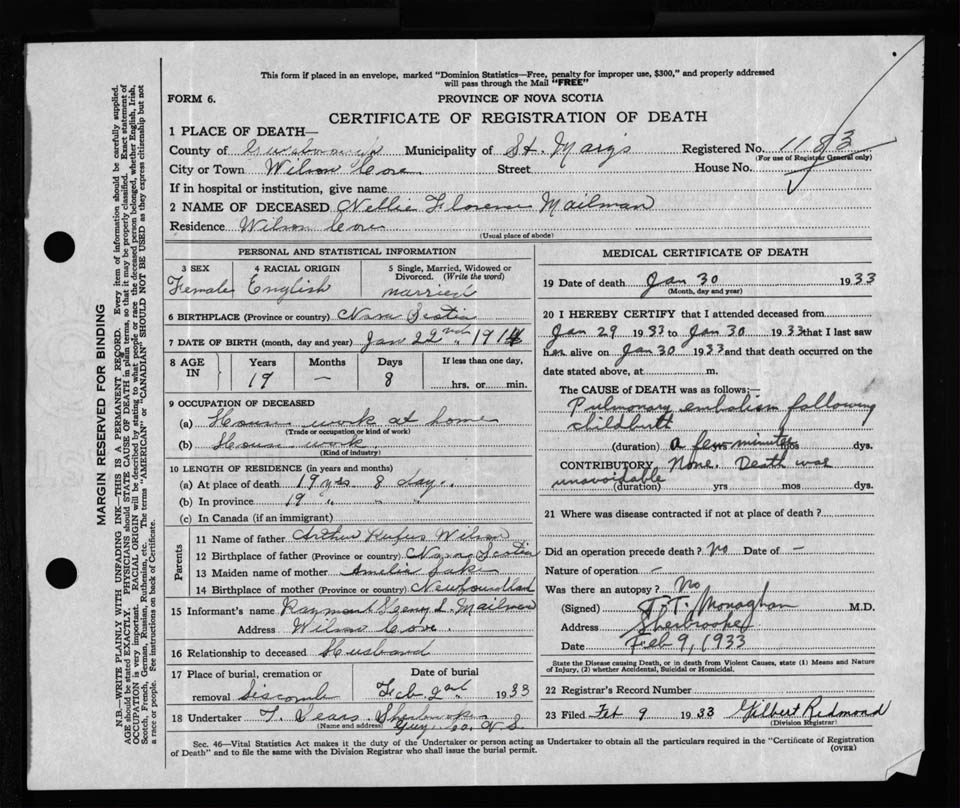 This form if placed in an envelope, marked "Dominion Statistics—Free, penalty for improper use, $300," and properly addressed
will pass through the Mail "FREE"
FORM 6.
PROVINCE OF NOVA SCOTIA
CERTIFICATE OF REGISTRATION OF DEATH
1 PLACE OF DEATH—
County of Municipality of St. Marys Registered No. 1183
(For use of Registrar General only)
City or Town Wilson Cove Street House No.
If in hospital or institution, give name
2 NAME OF DECEASED Nellie Florence Mailman
Residence Wilson Cove
(Usual place of abode)
PERSONAL AND STATISTICAL INFORMATION
3 SEX 4 RACIAL ORIGIN 5 Single, Married, Widowed or
Divorced. (Write the word)
Female English married
6 BIRTHPLACE (Province or country) Nova Scotia
7 DATE OF BIRTH (month, day and year) Jan 22nd, 1914
8 AGE IN Years Months Days If less than one day,
19 – 8 hrs. or min.
9 OCCUPATION OF DECEASED
(a) House work at home
(Trade or occupation or kind of work)
(b) House work
(Kind of industry)
10 LENGTH OF RESIDENCE (in years and months)
(a) At place of death 19 yrs 8 days
(b) In province 19 " "
(c) In Canada (if an immigrant)
Parents
11 Name of father Arthur Rufus Wilson
12 Birthplace of father (Province or country) Nova Scotia
13 Maiden name of mother Amelia
14 Birthplace of mother (Province or country) Newfoundland
15 Informant's name Raymond Mailman
Address Wilson Cove.
16 Relationship to deceased Husband
17 Place of burial, cremation or removal Liscomb
Date of burial Feb 2nd 1933
18 Undertaker T. Sears Sherbrooke
(Name and address) Guy. Co. N. S.
MEDICAL CERTIFICATE OF DEATH
19 Date of death Jan 30 1933
(Month, day and year)
20 I HEREBY CERTIFY that I attended deceased from
Jan 29 1933 to Jan 30 1933 that I last saw
her alive on Jan 30 1933 and that death occurred on the
date stated above, at m.
The CAUSE of DEATH was as follows:—
Pulmonary embolism following
childbirth
(duration) a few minutes mos dys.
CONTRIBUTORY None. Death was
unavoidable
(duration) yrs mos dys.
21 Where was disease contracted if not at place of death?
Did an operation precede death? No Date of –
Nature of operation –
Was there an autopsy? No
(Signed) T. T. Monaghan M.D.
Address Sherbrooke
Date Feb 9, 1933
State the Disease causing Death, or in death from Violent Causes, state (1) Means and Nature
of Injury, (2) whether Accidental, Suicidal or Homicidal.
22 Registrar's Record Number
23 Filed Feb 9 1933 Gilbert Redmond
(Division Registrar)
Sec. 46—Vital Statistics Act makes it the duty of the Undertaker or person acting as Undertaker to obtain all the particulars required in the "Certificate of Registration
of Death" and to file the same with the Division Registrar who shall issue the burial permit.
(OVER)
MARGIN RESERVED FOR BINDING
N.B.—WRITE PLAINLY WITH UNFADING INK—THIS IS A PERMANENT RECORD. Every item of information should be carefully supplied.
AGE should be stated EXACTLY. PHYSICIANS should STATE CAUSE OF DEATH in plain terms, so that it may be properly classified. Exact statement of
OCCUPATION is very important. RACIAL ORIGIN will be described by stating to what people or race the deceased person belonged, whether English, Irish,
Scotch, French, German, Russian, Ruthenian, etc. The terms "AMERICAN" or "CANADIAN" SHOULD NOT BE USED as they express citizenship but not
a race or people. See instructions on back of Certificate.